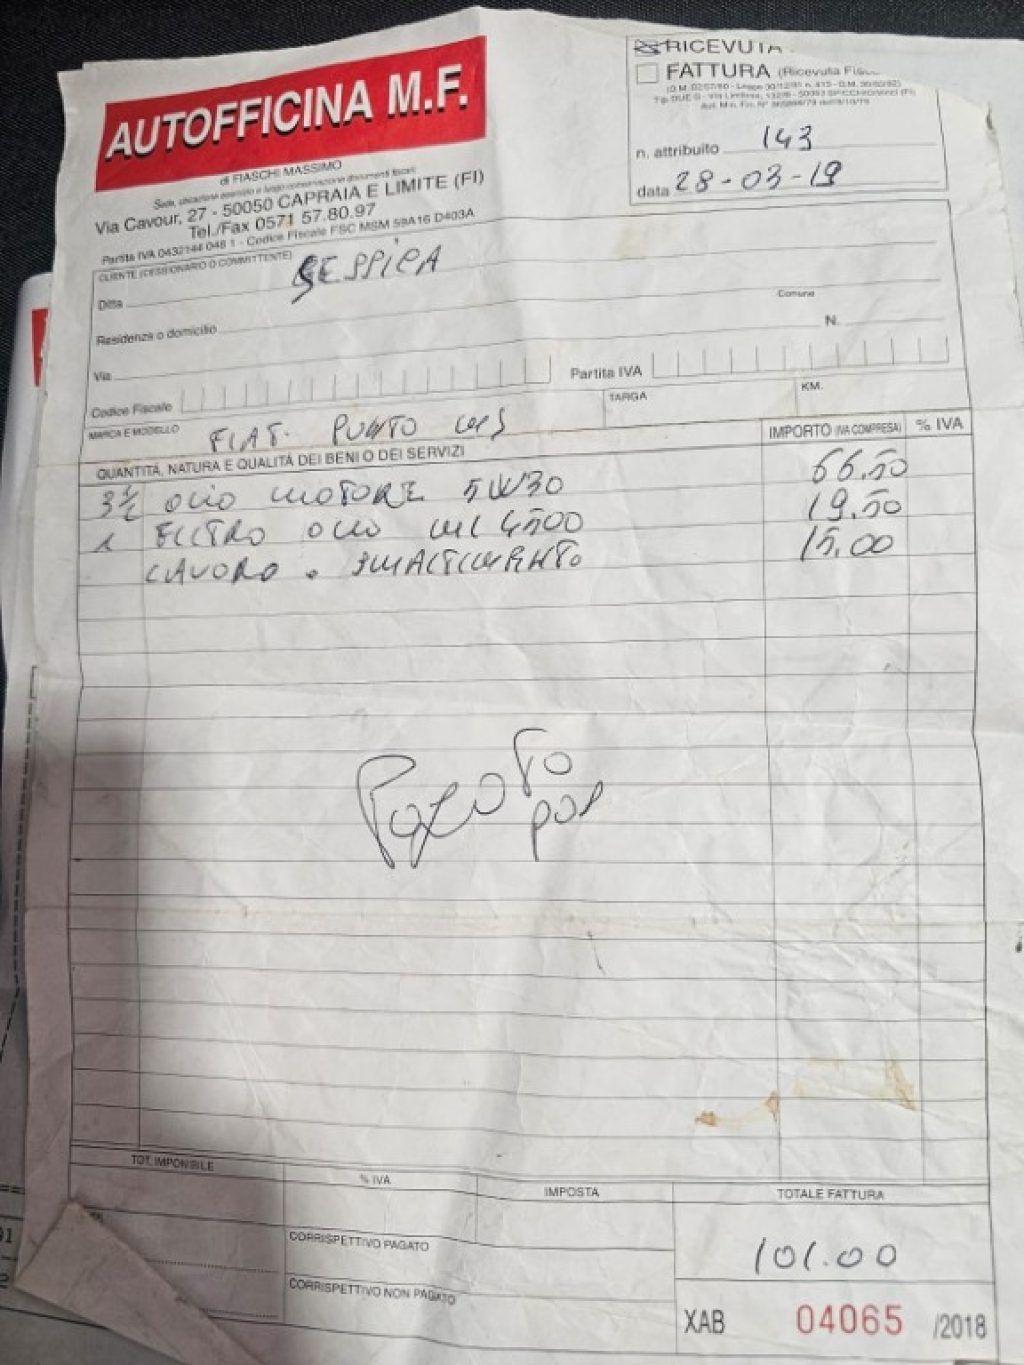 AUTOFFICINA M.F.
di FIASCHI MASSIMO
Via Cavour, 27 - 50050 CAPRAIA E LIMITE (FI)
Tel./Fax 0571 57.80.97
Partita IVA 0432144 048 1 - Codice Fiscale FSC MSM 59A16 D403A
RICEVUTA
FATTURA (Ricevuta
n. attribuito 143
data 28-03-19
CLIENTE (CESSIONARIO O COMMITTENTE)
Ditta
Residenza o domicilio
Comune
Via
N.
Codice Fiscale
Partita IVA
MARCA E MODELLO FIAT. PUNTO
TARGA
KM.
QUANTITÀ, NATURA E QUALITÀ DEI BENI O DEI SERVIZI
IMPORTO (IVA COMPRESA)
% IVA
3 1/2 OLIO MOTORE 5W30 66.50
1 FILTRO OLIO 19.50
LAVORO . SMALTIMENTO 15,00
TOT. IMPONIBILE
% IVA
IMPOSTA
TOTALE FATTURA
CORRISPETTIVO PAGATO
101.00
CORRISPETTIVO NON PAGATO
XAB 04065 /2018